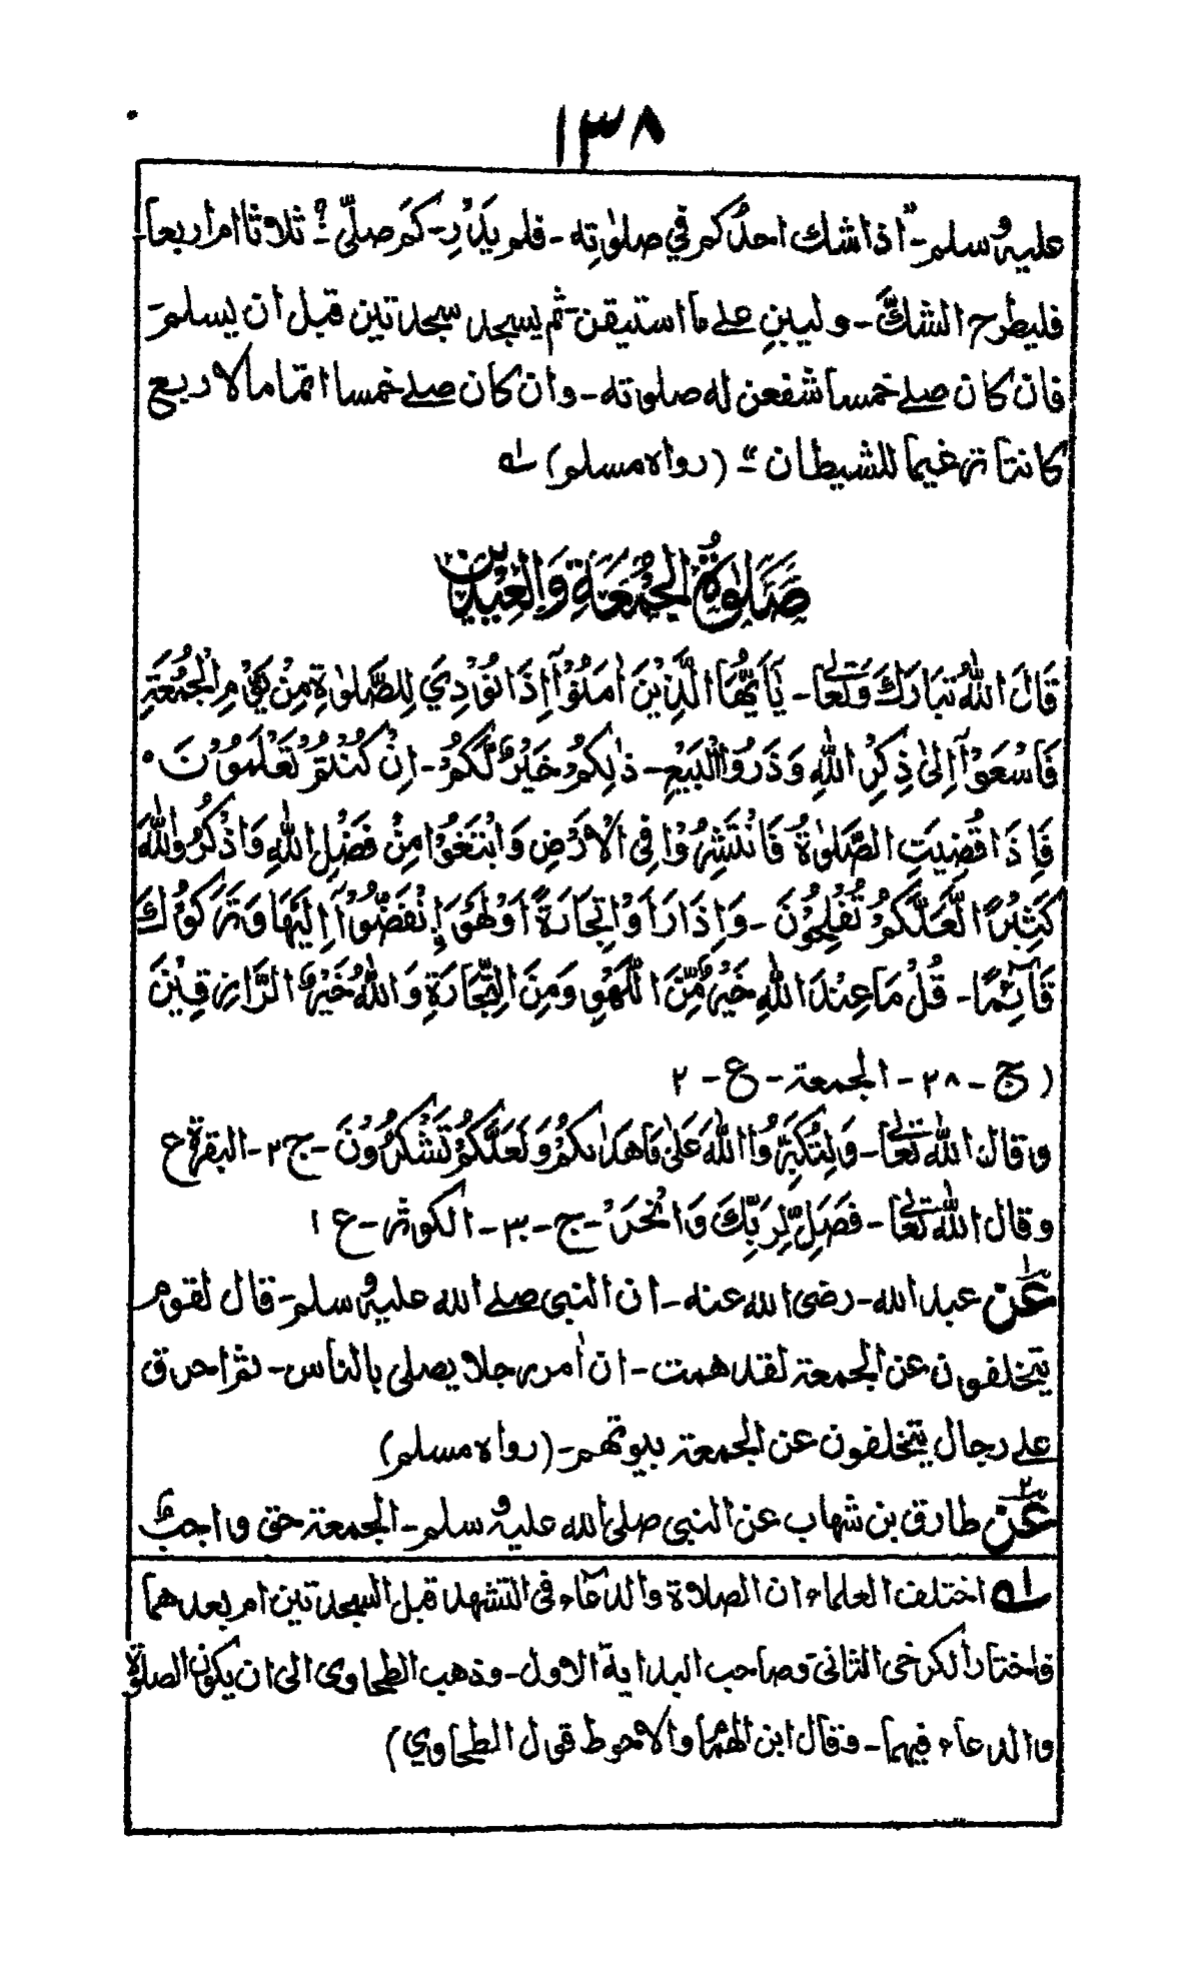 ١٣٨
عليه و سلم - " اذا شك احدكم في صلوٰتِه - فلم يَدْرِ - كَمْ صلّى ؟ - ثلاثا ام اربعا -
فليطرح الشكَّ - وليبنِ على ما استيقن - ثم يسجد سجدتين قبل ان يسلم -
فان كان صلى خمسا شفعن له صلوته - وان كان صلى خمسا اتماما لاربع
كانتا ترغيما للشيطان " - (رواه مسلم) له
صَلَوٰةُ الْجُمُعَةِ وَالْعِيْدَيْنِ
قَالَ اللهُ تَبَارَكَ وَتَعَالٰى - يَآ اَيُّهَا الَّذِيْنَ اٰمَنُوْآ اِذَا نُوْدِيَ لِلصَّلوٰةِ مِنْ يَّوْمِ الْجُمُعَةِ
فَاسْعَوْآ اِلٰى ذِكْرِ اللهِ وَذَرُوا الْبَيْعِ - ذٰلِكُمْ خَيْرٌ لَّكُمْ - اِنْ كُنْتُمْ تَعْلَمُوْنَ ٥
فَاِذَا قُضِيَتِ الصَّلوٰةُ فَانْتَشِرُوْا فِى الْاَرْضِ وَابْتَغُوْا مِنْ فَضْلِ اللهِ وَاذْكُرُوا اللهَ
كَثِيْرًا لَّعَلَّكُمْ تُفْلِحُوْنَ - وَاِذَا رَاَوْا تِجَارَةً اَوْ لَهْوَ اِنْفَضُّوْآ اِلَيْهَا وَتَرَكُوْكَ
قَآئِمًا - قُلْ مَا عِنْدَ اللهِ خَيْرٌ مِّنَ اللَّهْوِ وَمِنَ التِّجَارَةِ وَاللهُ خَيْرُ الرَّازِقِيْنَ
( ج - ٢٨ - الجمعة - ع - ٢
وقال الله تعالٰى - وَلِتُكَبِّرُوا اللهَ عَلٰى مَا هَدٰىكُمْ وَلَعَلَّكُمْ تَشْكُرُوْنَ - ج ٢ - البقرة ع
وقال الله تعالٰى - فَصَلِّ لِرَبِّكَ وَانْحَرْ - ج - ٣٠ - الكوثر - ع ١
عَن ١ عبد الله - رضى الله عنه - ان النبي صلى الله عليه و سلم - قال لقوم
يتخلفون عن الجمعة لقد هممت - ان اٰمر رجلا يصلى بالناس - ثم احرق
على رجال يتخلفون عن الجمعة بيوتهم - (رواه مسلم)
عَن ٢ طارق بن شهاب عن النبي صلى الله عليه و سلم - الجمعة حق واجبٌ
له اختلف العلماء ان الصلاة والدعاء فى التشهد قبل السجدتين ام بعدهما
فاختار الكرخى الثانى وصاحب البداية الاول - وذهب الطحاوى الى ان يكون الصلوٰة
والدعاء فيهما - وقال ابن الهمام والاحوط قول الطحاوي)